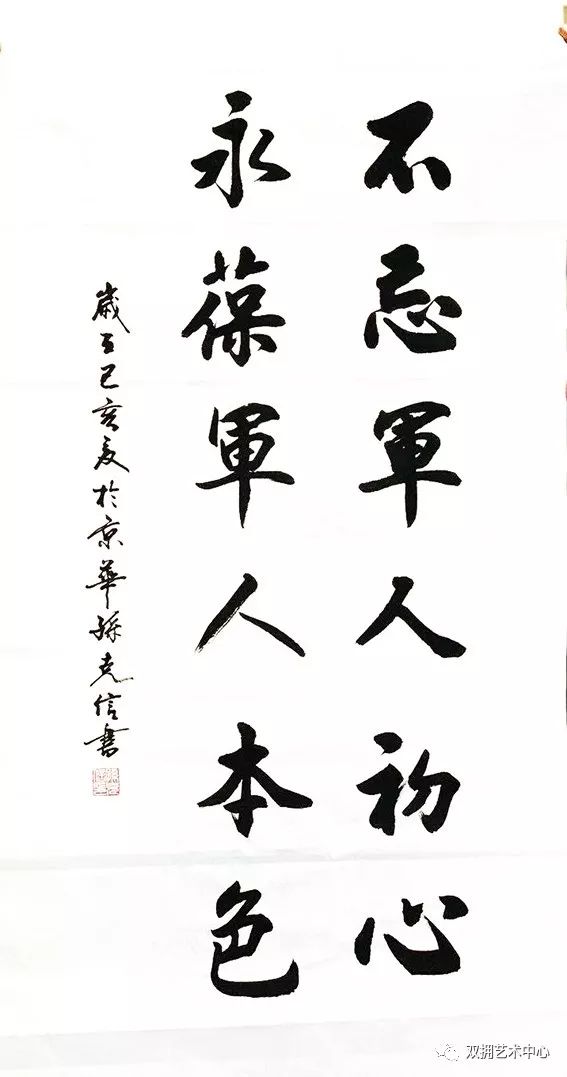 不忘軍人初心
永葆軍人本色
歲在己亥夏於京華孫克信書
双拥艺术中心